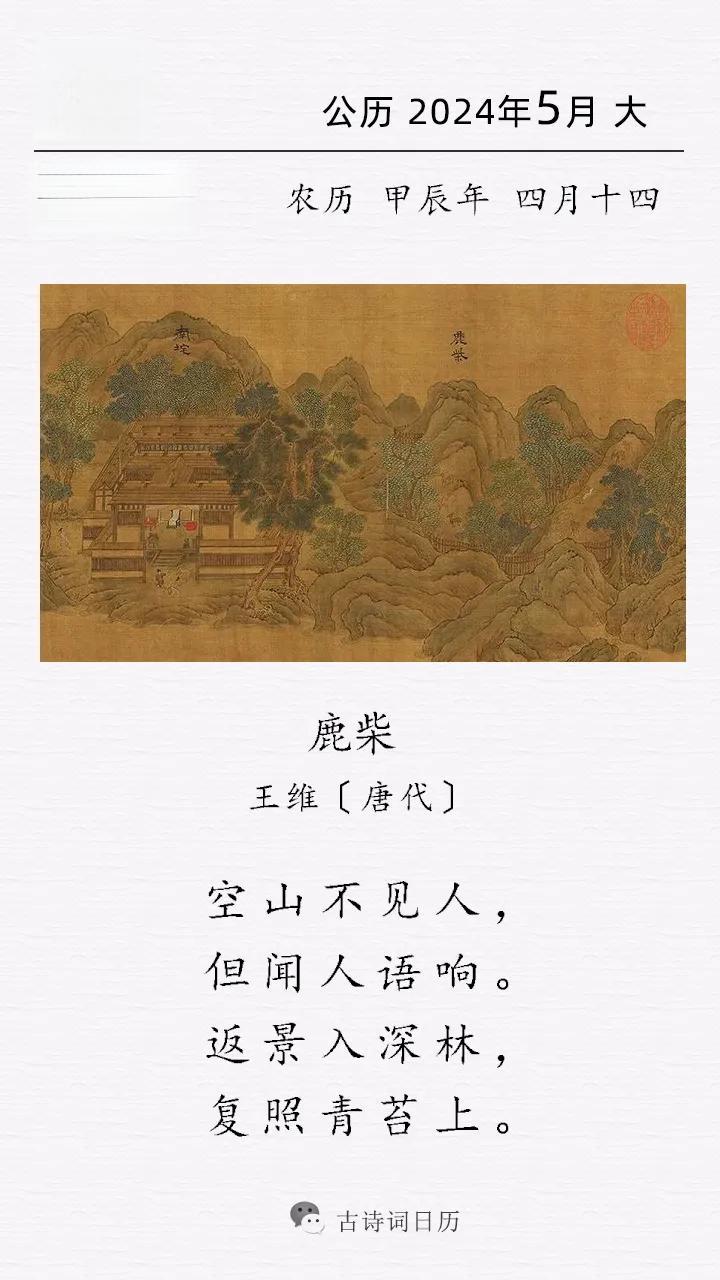 公历 2024年5月 大
农历 甲辰年 四月十四
南垞
鹿柴
鹿柴
王维〔唐代〕
空山不见人，
但闻人语响。
返景入深林，
复照青苔上。
古诗词日历